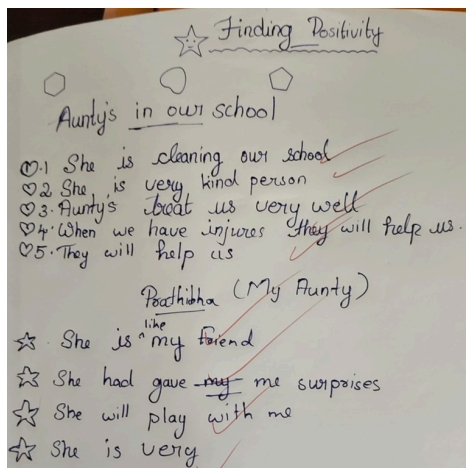 Finding Positivity
Aunty's in our school
1 She is cleaning our school
2 She is very kind person
3. Aunty's treat us very well
4. When we have injures they will help us.
5. They will help us
Prathibha (My Aunty)
She is like my friend
She had gave my me surprises
She will play with me
She is very